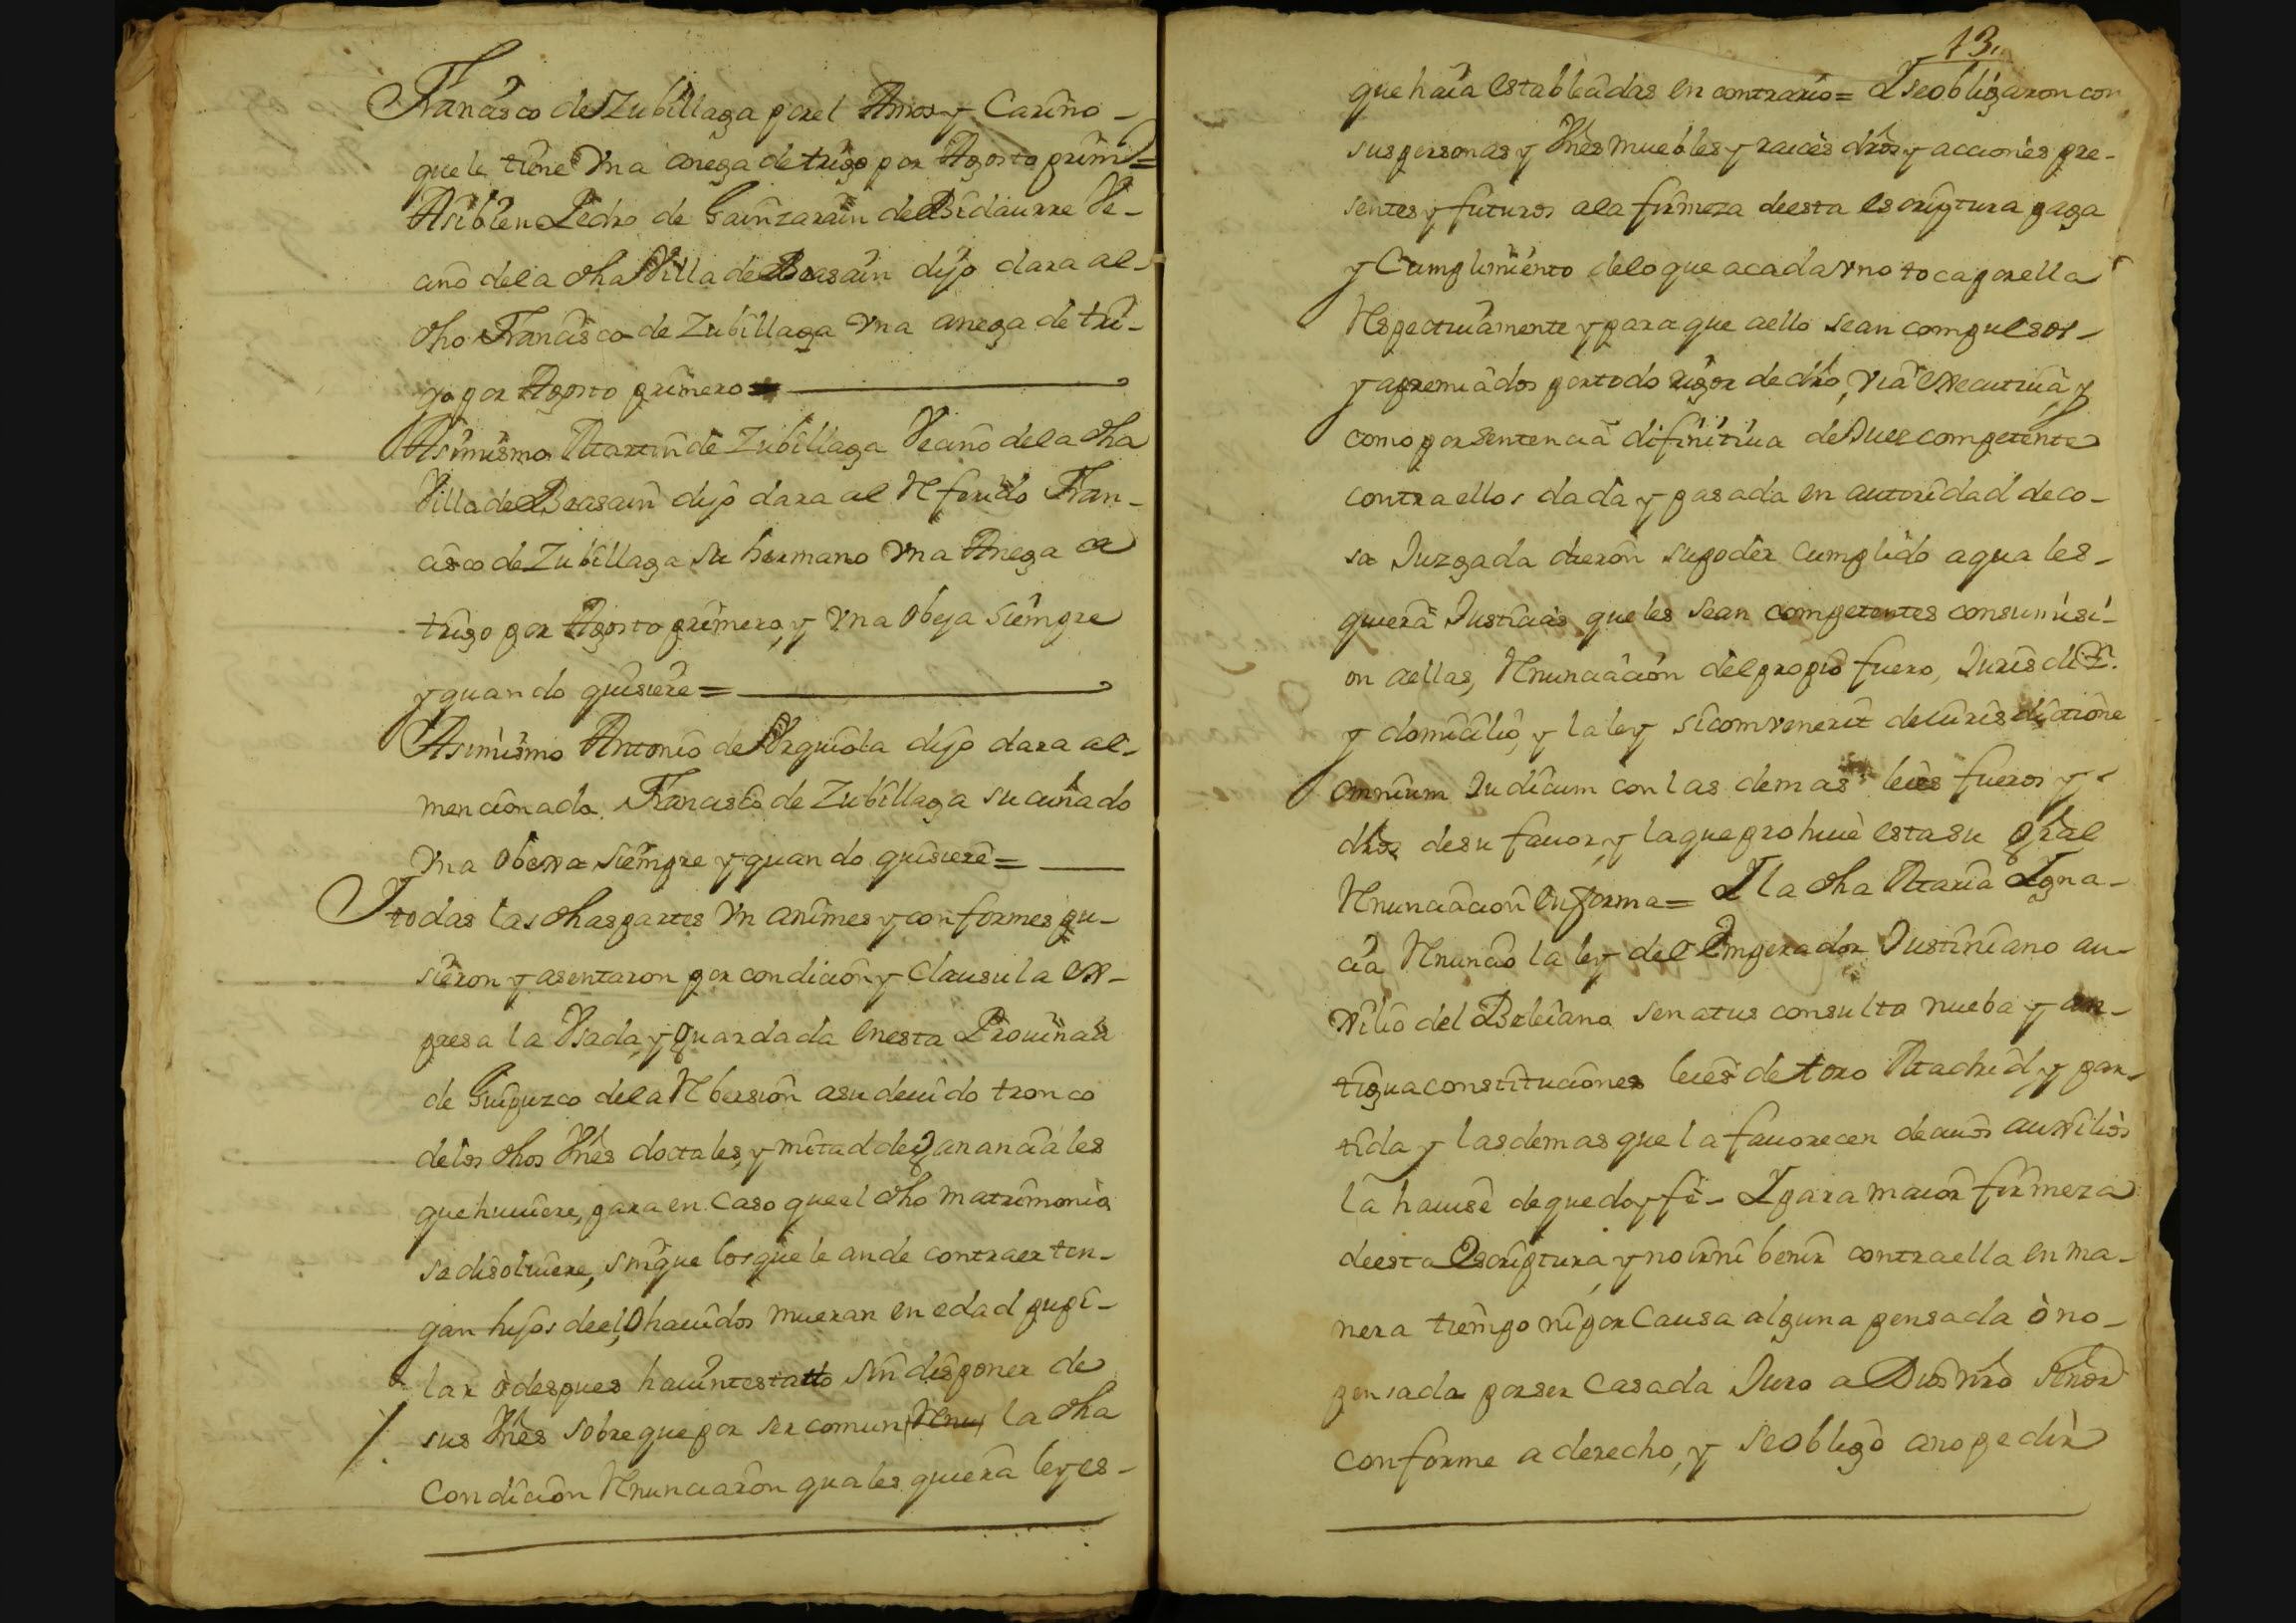 Francisco de Zubillaga por el Amor y Cariño -
que le tiene Vna anega de trigo por Agosto prim.º =
Asibien Pedro de Gainzarain de Bidaurre Ve-
cino de la dha Villa de Beasain dijo dara al-
dho Francisco de Zubillaga Vna anega de tri-
go por Agosto primero =
Asimismo Martin de Zubillaga Vecino de la dha
Villa de Beasain dijo dara al Referido Fran-
cisco de Zubillaga su hermano Vna Anega de
trigo por Agosto primero, y Vna Obeja siempre
y quando quisiere =
Asimismo Antonio de Vrquiola dijo dara al-
mencionado Francisco de Zubillaga su cuñado
Vna Obexa siempre y quando quisiere =
Y todas las dhas partes Vnanimes y conformes pu-
sieron y asentaron por condicion y Clausula ex-
presa la Vsada, y Guardada en esta Prouincia
de Guipuzco de la Rebersion a su deuido tronco
de los dhos Vnes doctales, y mitad de Gananciales
que huuiere, para en Caso que el dho matrimonio
se disoluiere, sin que los que le an de contraer ten-
gan hijos de el, O hauidos mueran en edad pupi-
lar ò despues hauintestatto sin disponer de
sus Vnes sobre que por ser comun (Renu) la dha
Condicion Renunciaron quales quiera leyes-
13.
que haia establecidas en contrario = Y se obligaron con
sus personas y Vnes muebles y raices dros y acciones pre-
sentes y futuros a la firmeza de esta escriptura paga
y Cumplimiento de lo que a cada vno toca por ella
Respectiuamente y para que a ello sean compulsos -
y apremiados por todo rigor de dro, via executiua y
como por sentencia difinitiua de Juez competente
contra ellos dada y pasada en autoridad de co-
sa Juzgada dieron su poder cumplido a qua les-
quiera Justicias que les sean competentes con sumisi-
on a ellas, Renunciacion del propio fuero, Jurisdi.on
y domicilio, y la ley si convenerit de iurisdictione
omnium Judicum con las demas leies fueros y -
dros de su fauor, y la que prohiue esta su Gral
Renunciacion en forma = Y la dha Maria Igna-
cia Renuncio la ley del Emperador Justiniano au-
xilio del Beleiano senatus consulto nueba y an-
tigua constituciones leies de toro Madrid, y par-
tida y las demas que la fauorecen de cuios auxilios
la hauise de que doy fe - Y para maior firmeza
de esta Escriptura, y no ir ni benir contra ella en ma-
nera tiempo ni por Causa alguna pensada ò no -
pensada por ser Casada Juro a Dios nro Señor
conforme a derecho, y se obligò a no pedir